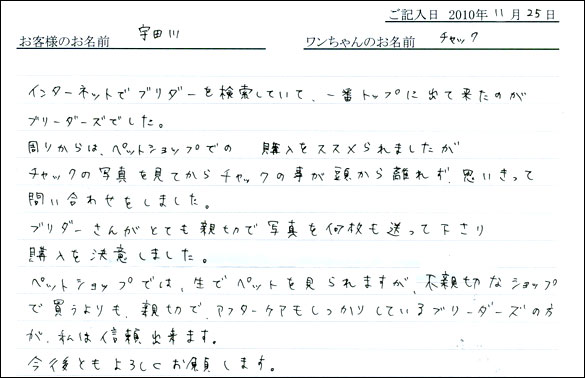 ご記入日 2010年 11月 25日
お客様のお名前 宇田川 ワンちゃんのお名前 チャック
インターネットでブリダーを検索していて、一番トップに出て来たのが
ブリーダーズでした。
周りからは、ペットショップでの 購入をススメられましたが
チャックの写真を見てからチャックの事が頭から離れず、思いきって
問い合わせをしました。
ブリダーさんがとても親切で写真を何枚も送って下さり
購入を決意しました。
ペットショップでは、生でペットを見られますが、不親切なショップ
で買うよりも、親切で、アフターケアもしっかりしているブリーダーズの方
が、私は信頼出来ます。
今後ともよろしくお願します。